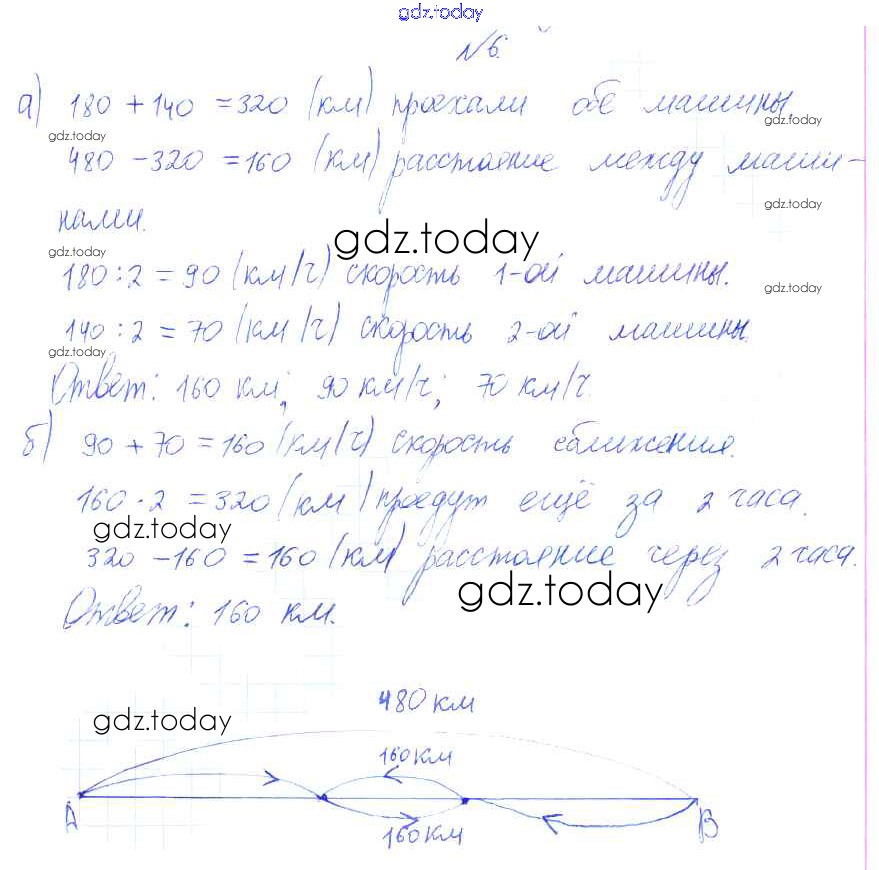 gdz.today
№6.
а) 180 + 140 = 320 (км) проехали обе машины
gdz.today
gdz.today
480 - 320 = 160 (км) расстояние между маши-
gdz.today
нами.
gdz.today
gdz.today
180 : 2 = 90 (км/ч) скорость 1-ой машины.
gdz.today
140 : 2 = 70 (км/ч) скорость 2-ой машины.
gdz.today
Ответ: 160 км; 90 км/ч; 70 км/ч.
б) 90 + 70 = 160 (км/ч) скорость сближения.
160 · 2 = 320 (км) проедут ещё за 2 часа.
gdz.today
320 - 160 = 160 (км) расстояние через 2 часа.
gdz.today
Ответ: 160 км.
480 км
gdz.today
160 км
А
160 км
В